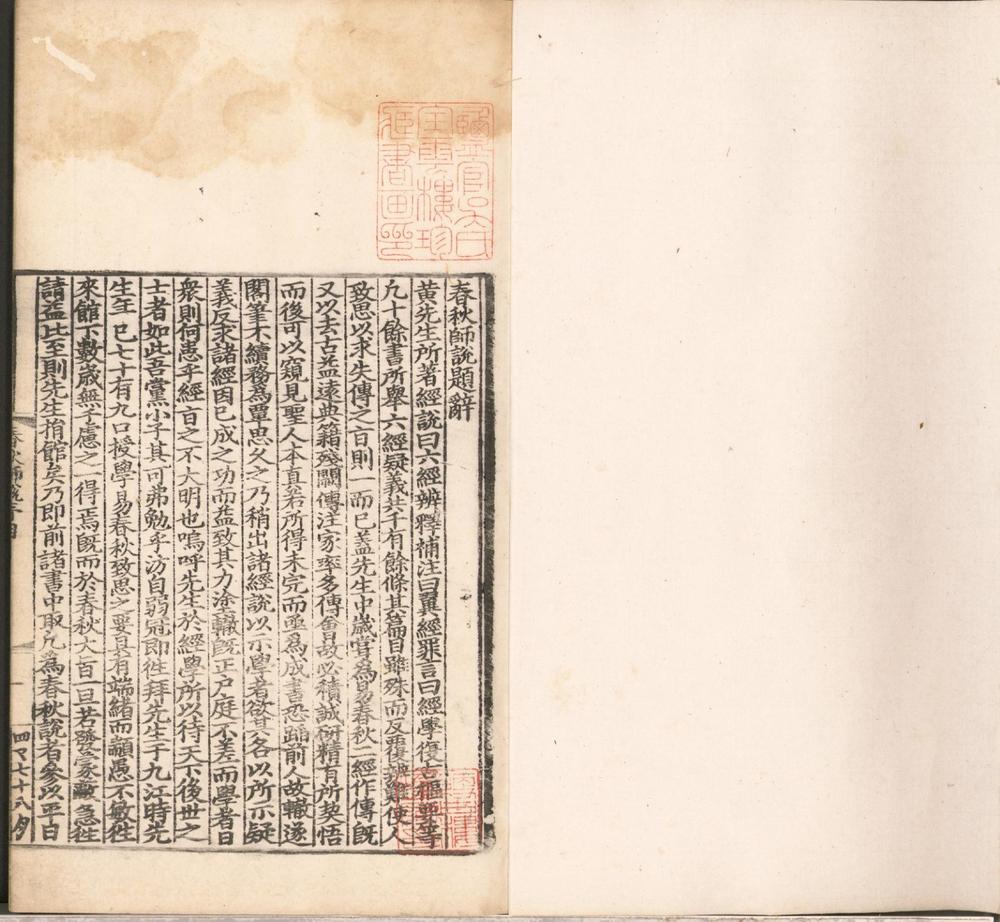 春秋師說題辭
黃先生所著經說曰六經辨釋補注曰翼經罪言曰經學復古樞要等
九十餘書所舉六經疑義共千有餘條其篇目雖殊而反覆辨難使人
致思以求失傳之旨則一而已蓋先生中歲嘗為易春秋二經作傳既
又以去古益遠典籍殘闕傳注家率多傅會故必積誠研精有所契悟
而後可以窺見聖人本真若所得未完而亟為成書恐踵前人故轍遂
閣筆不續務為覃思久之乃稍出諸經說以示學者欲其各以所示疑
義反求諸經因已成之功而益致其力塗轍既正户庭不差而學者日
衆則何患乎經旨之不大明也嗚呼先生於經學所以待天下後世之
士者如此吾黨小子其可弗勉乎汸自弱冠即往拜先生于九江時先
生年已七十有九口授學易春秋致思之要具有端緒而顓愚不敏往
來館下數歲無千慮之一得焉既而於春秋大旨旦若發蒙敺急往
請益比至則先生捐館矣乃即前諸書中取凡為春秋說者參以平日
春秋師說
鹽官
宝雲樓珍
書画印